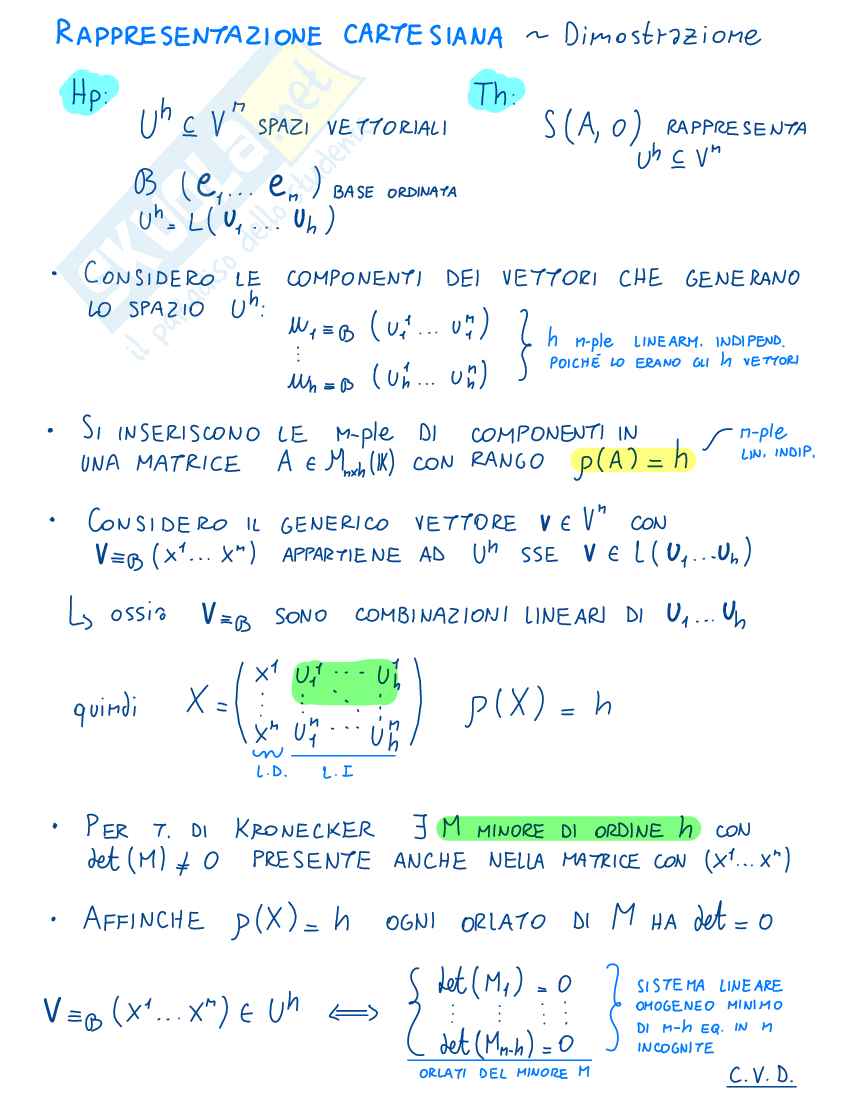 RAPPRESENTAZIONE CARTESIANA ~ Dimostrazione
Hp:
Uʰ ⊆ Vⁿ SPAZI VETTORIALI
B (e₁... eₙ) BASE ORDINATA
Uʰ = L(U₁... Uₕ)
Th:
S(A, O) RAPPRESENTA
Uʰ ⊆ Vⁿ
• CONSIDERO LE COMPONENTI DEI VETTORI CHE GENERANO
LO SPAZIO Uʰ:
u₁ ≡B (U₁¹... U₁ⁿ)
⋮
uₕ ≡B (Uₕ¹... Uₕⁿ)
h n-ple LINEARM. INDIPEND.
POICHÉ LO ERANO GLI h VETTORI
• SI INSERISCONO LE n-ple DI COMPONENTI IN
UNA MATRICE A ∈ Mₙₓₕ(K) CON RANGO ρ(A) = h
n-ple
LIN. INDIP.
• CONSIDERO IL GENERICO VETTORE V ∈ Vⁿ CON
V≡B (x¹... xⁿ) APPARTIENE AD Uʰ SSE V ∈ L(U₁...Uₕ)
↳ ossia V≡B SONO COMBINAZIONI LINEARI DI U₁...Uₕ
quindi X = ( x¹ U₁¹ ··· Uₕ¹
⋮ ⋮ ⋱ ⋮
xⁿ U₁ⁿ ··· Uₕⁿ ) ρ(X) = h
L.D. L.I
• PER T. DI KRONECKER ∃ M MINORE DI ORDINE h CON
det(M) ≠ 0 PRESENTE ANCHE NELLA MATRICE CON (x¹...xⁿ)
• AFFINCHE ρ(X) = h OGNI ORLATO DI M HA det = 0
V≡B (x¹...xⁿ) ∈ Uʰ ⟺ { det(M₁) = 0
⋮ ⋮ ⋮⋮
det(Mₙ₋ₕ) = 0
ORLATI DEL MINORE M
SISTEMA LINEARE
OMOGENEO MINIMO
DI n-h EQ. IN n
INCOGNITE
C.V.D.
SKUOLA.net
il paradiso dello studente